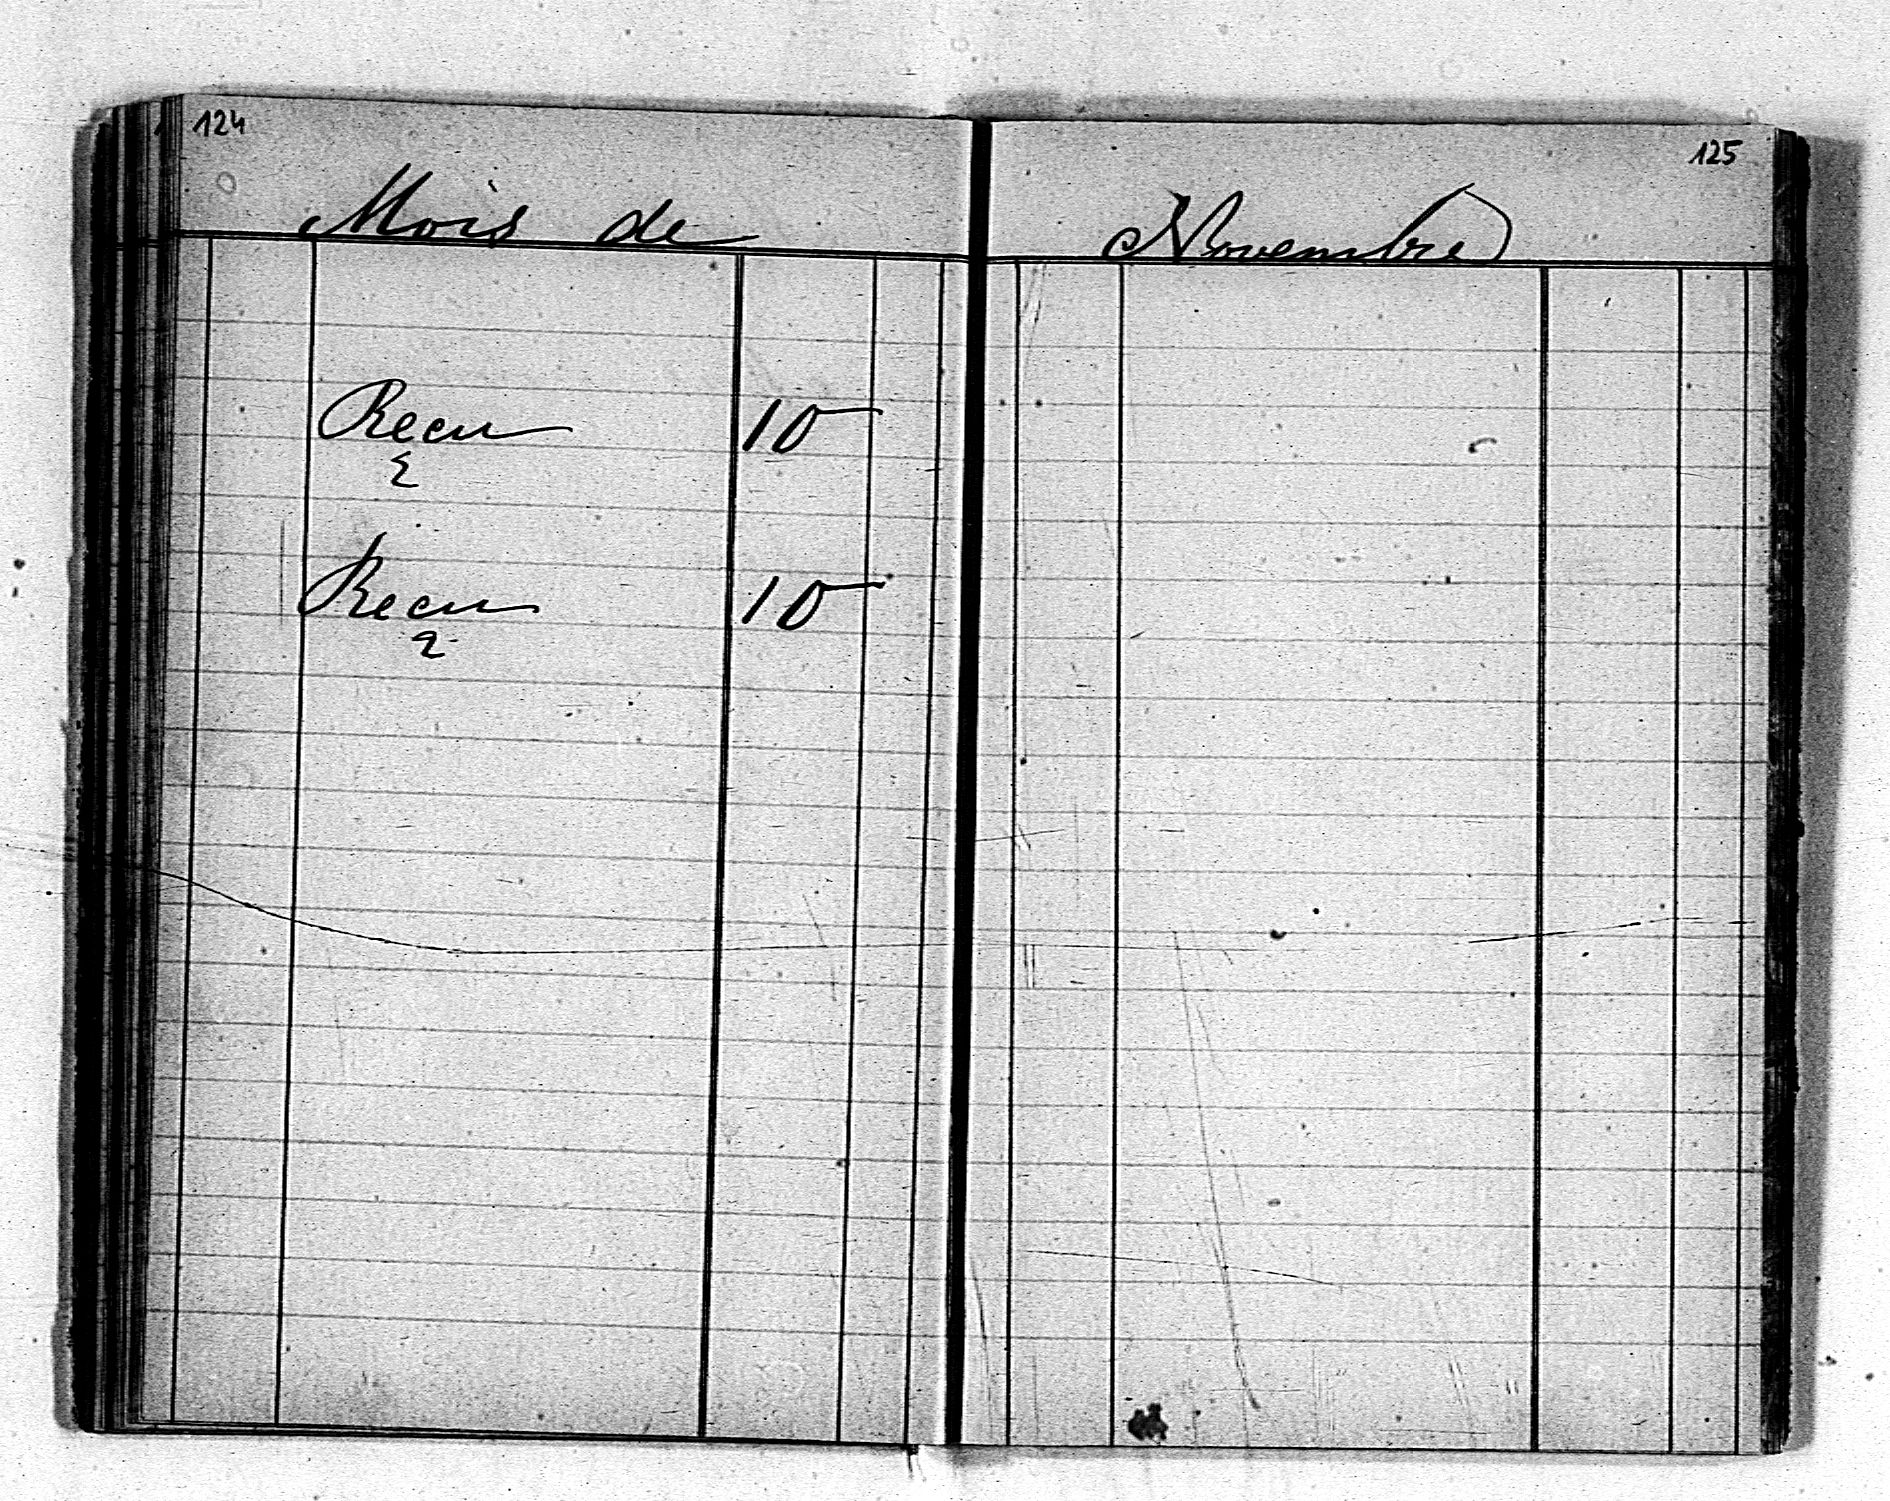 124
Mois de
Recu 10
Recu 10
125
Novembre